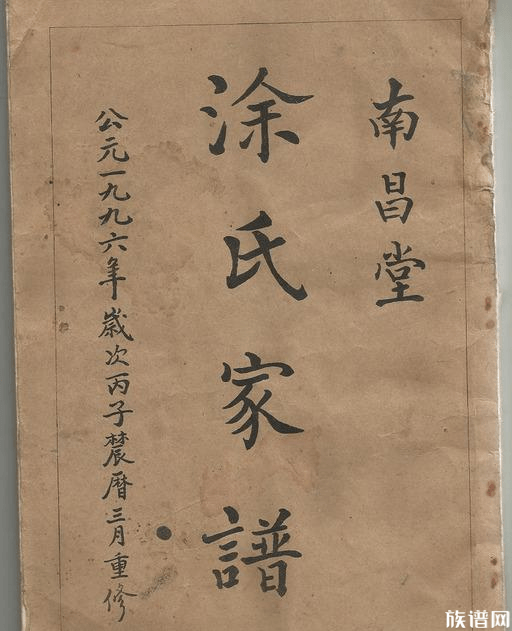 南昌堂
涂氏家譜
公元一九九六年歲次丙子農曆三月重修
族谱网